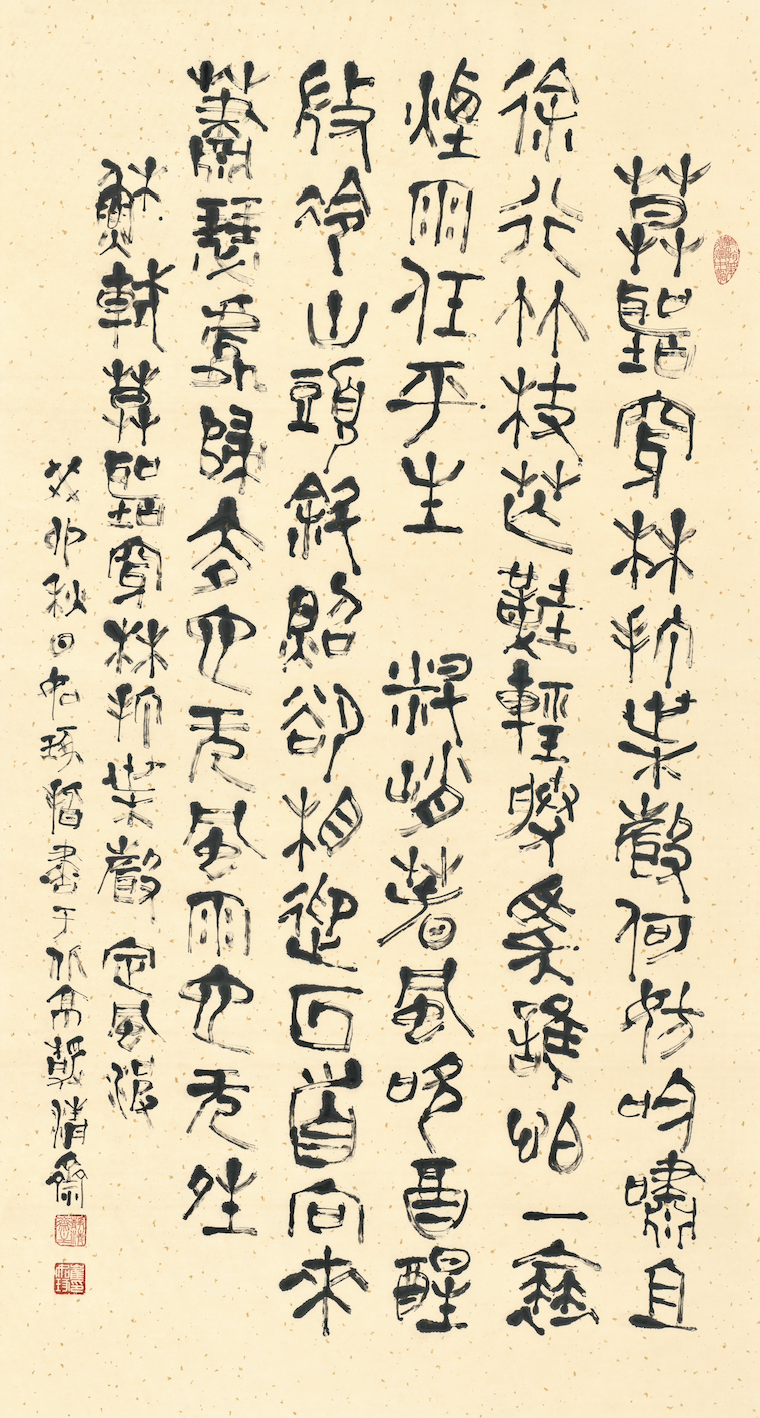 莫聽穿林打葉聲何妨吟嘯且
徐行竹杖芒鞵輕勝馬誰怕一蓑
煙雨任平生 料峭春風吹酒醒
微冷山頭斜照卻相迎回首向來
蕭瑟處歸去也无風雨也无晴
蘇軾莫聽穿林打葉聲定風波
癸卯秋日書于清齋